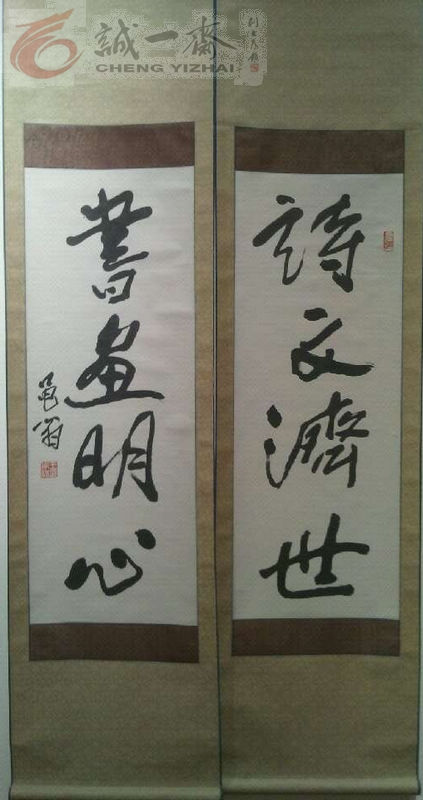 誠一齋
CHENG YIZHAI
詩文濟世
書畫明心